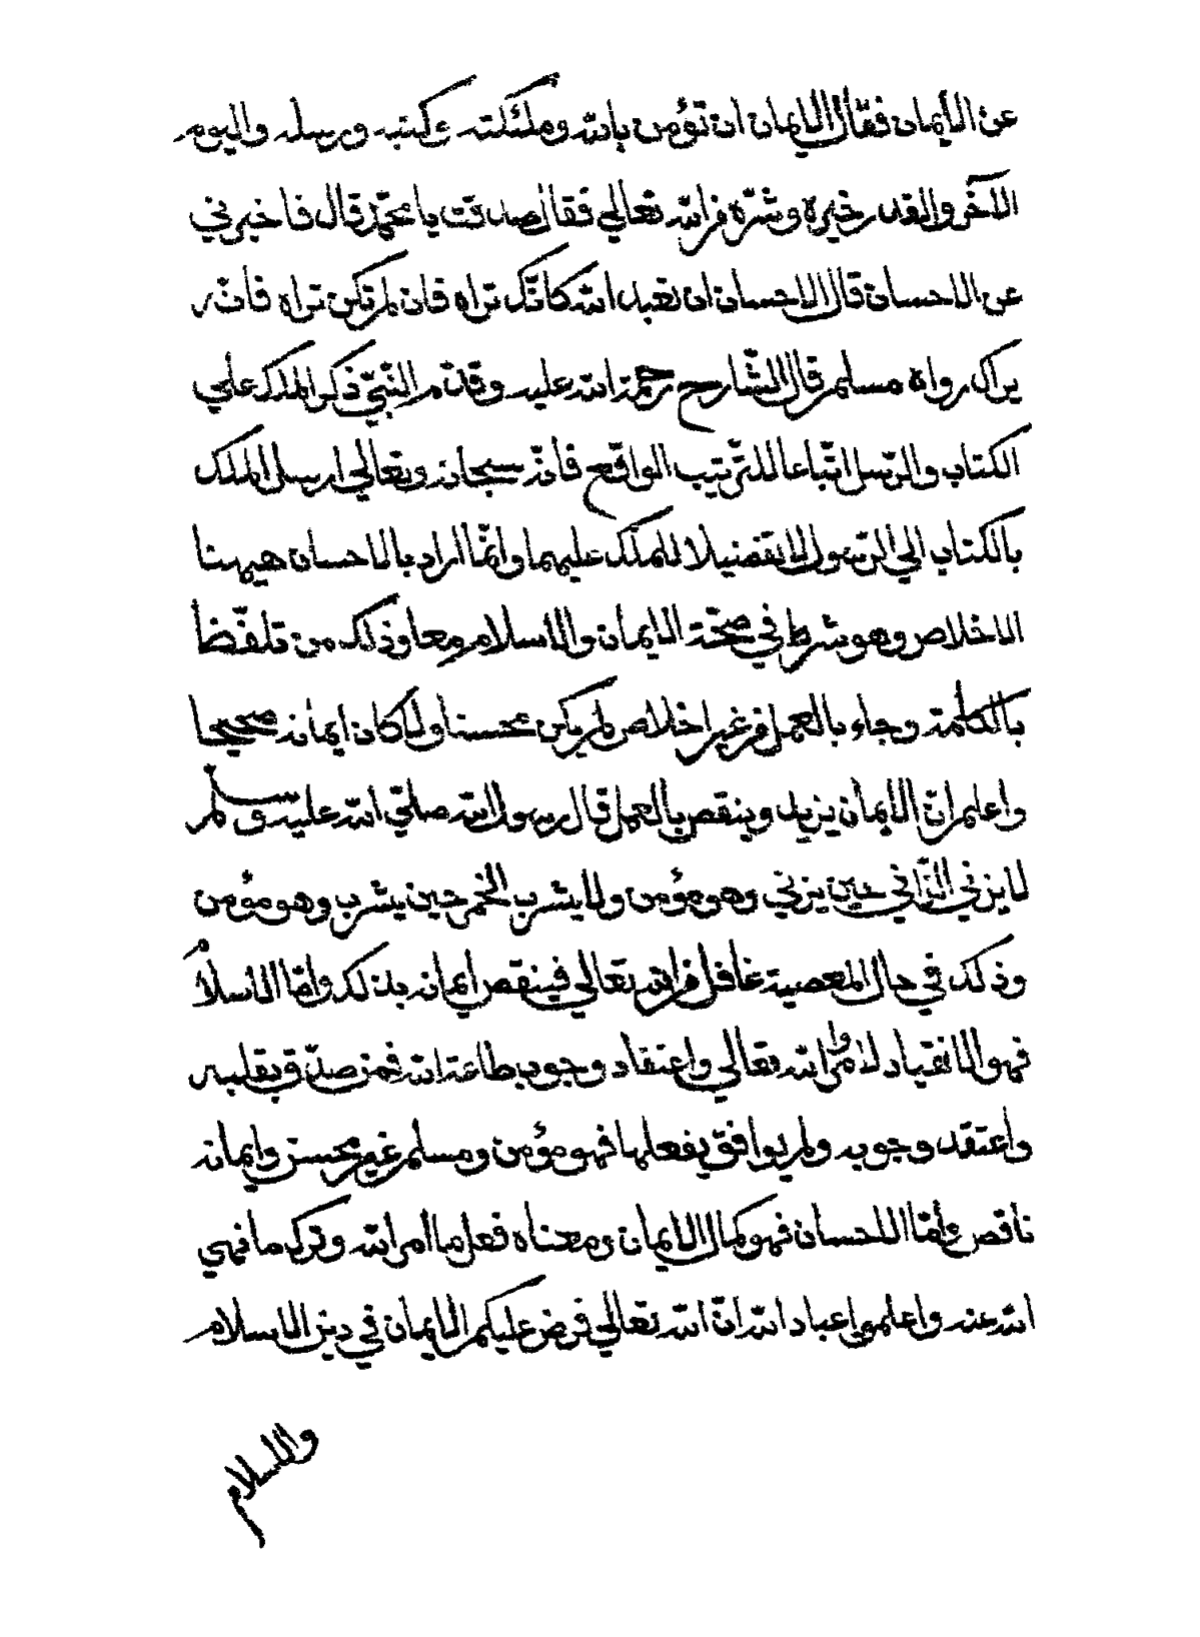 عن الايمان فقال الايمان ان تؤمن بالله وملئكته وكتبه ورسله واليوم
الآخر والقدر خيره وشرّه من الله تعالي فقال صدقت يا محمّد قال فاخبرني
عن الاحسان قال الاحسان ان تعبد الله كانّك تراه فان لم تكن تراه فانّه
يراك رواه مسلم قال الشّارح رحمة الله عليه وقدّم النّبيّ ذكر الملك علي
الكتاب والرّسل اتّباعا للتّرتيب الواقع فانّه سبحانه وتعالي ارسل الملك
بالكتاب الي الرّسول لا تفضيلا للملك عليهما وانّما اراد بالاحسان هيهنا
الاخلاص وهو شرط في صحّة الايمان والاسلام معا وذلك من تلفّظ
بالكلمة وجاء بالعمل من غير اخلاص لم يكن محسنا ولا كان ايمانه صحيحا
واعلم انّ الايمان يزيد وينقص بالعمل قال رسول الله صلّي الله عليه وسلم
لا يزني الزّاني حين يزني وهو مؤمن ولا يشرب الخمر حين يشرب وهو مؤمن
وذلك في حال المعصية غافل من الله تعالي فينقص ايمانه بذلك وامّا الاسلام
فهو الانقياد لاوامر الله تعالي واعتقاد وجوب طاعة الله فمن صدّق بقلبه
واعتقد وجوبه ولم يوافق بفعلها فهو مؤمن ومسلم غير محسن وايمانه
ناقص وامّا الاحسان فهو كمال الايمان ومعناه فعل ما امر الله وترك ما نهي
الله عنه واعلموا عباد الله انّ الله تعالي فرض عليكم الايمان في دين الاسلام
والسلام